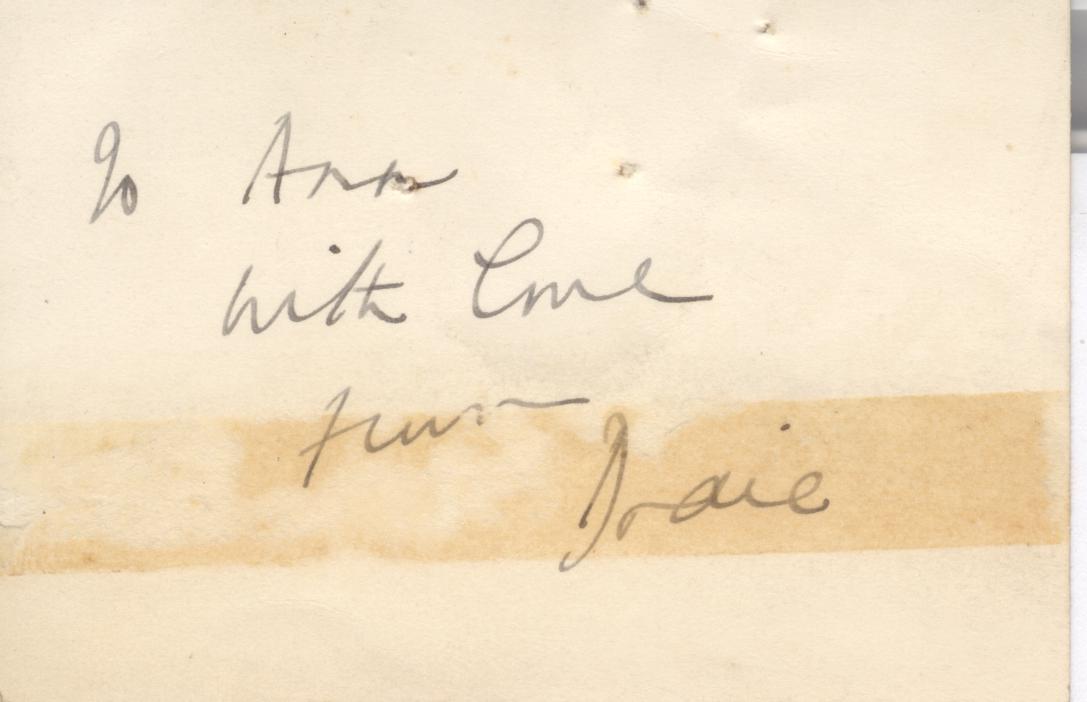 To Ann
with Love
from